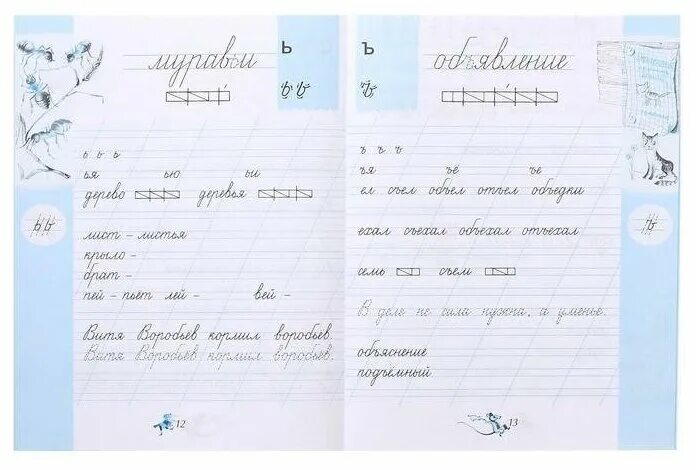 муравьи
Ь
ь ь
ь ь ь
ья ью ьи
дерево деревья
ь ь
лист – листья
крыло –
брат –
пей – пьёт лей – вей –
Витя Воробьёв кормил воробьёв.
Витя Воробьёв кормил воробьёв.
12
Ъ
объявление
ъ
ъ ъ ъ
ъя ъё ъе
ел съел объел отъел объедки
ъ
ехал съехал объехал отъехал
семь съем
В деле не сила нужна, а уменье.
объяснение
подъёмный
13